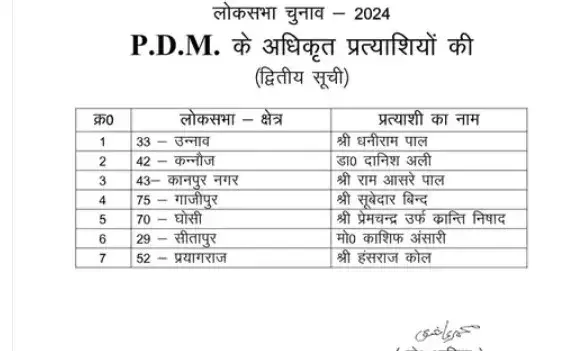 लोकसभा चुनाव – 2024
P.D.M. के अधिकृत प्रत्याशियों की
(द्वितीय सूची)
क्र0 लोकसभा – क्षेत्र प्रत्याशी का नाम
1 33 – उन्नाव श्री धनीराम पाल
2 42 – कन्नौज डा0 दानिश अली
3 43– कानपुर नगर श्री राम आसरे पाल
4 75 – गाजीपुर श्री सूबेदार बिन्द
5 70 – घोसी श्री प्रेमचन्द्र उर्फ क्रान्ति निषाद
6 29 – सीतापुर मो0 काशिफ अंसारी
7 52 – प्रयागराज श्री हंसराज कोल